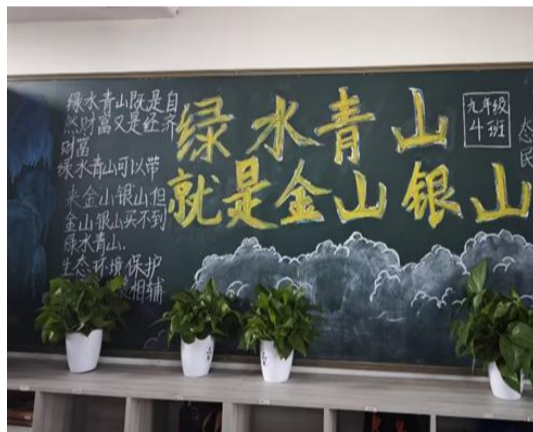 绿水青山既是自
然财富又是经济
财富
绿水青山可以带
来金山银山但
金山银山买不到
绿水青山.
生态环境保护
相辅
绿水青山
就是金山银山
九年级
4班
态
民